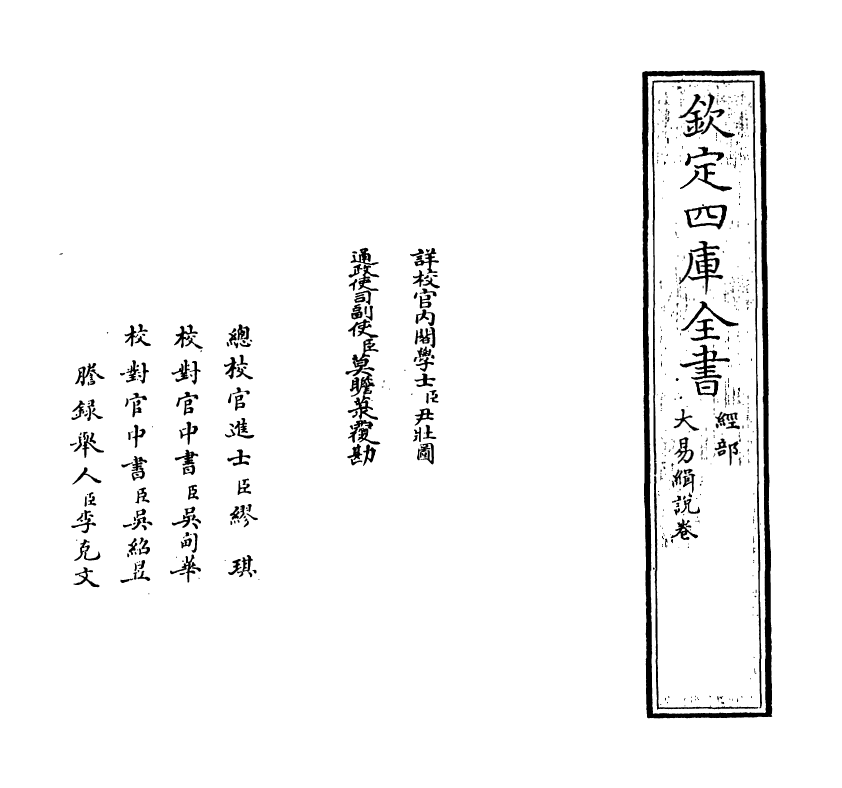 欽定四庫全書
經部
大易緝說卷
詳校官內閣學士臣尹壯圖
通政使司副使臣莫瞻菉覆勘
總校官進士臣繆琪
校對官中書臣吳甸華
校對官中書臣吳紹昱
謄錄舉人臣李克文